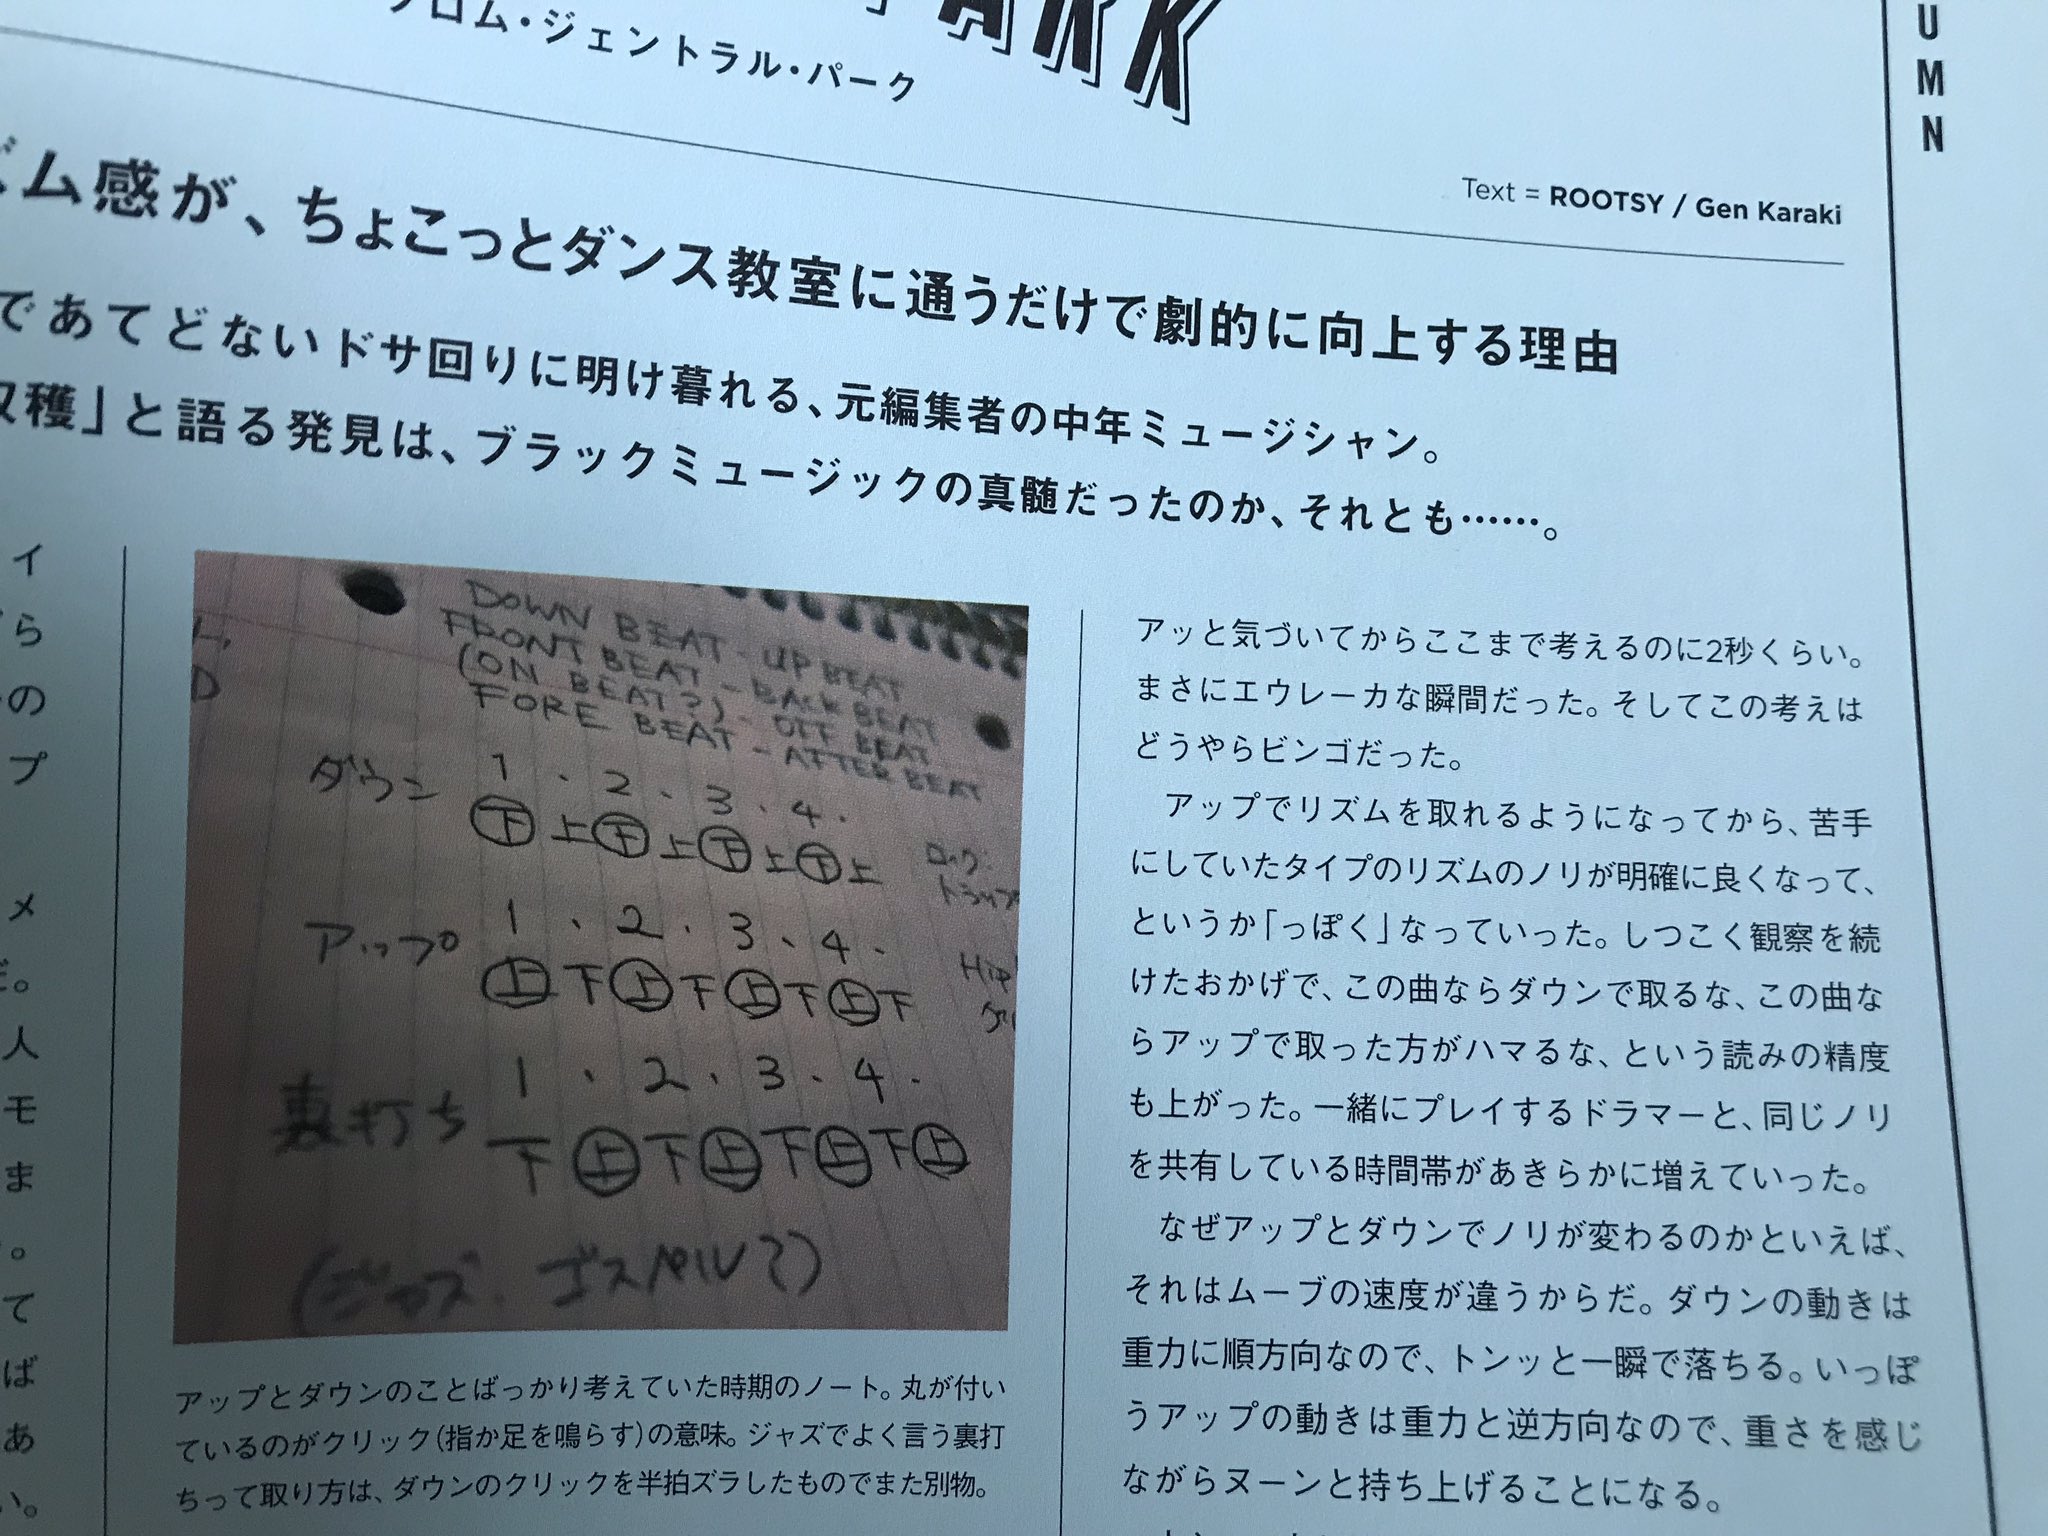 PARK
フロム・ジェントラル・パーク
UMN
Text = ROOTSY / Gen Karaki
ズム感が、ちょこっとダンス教室に通うだけで劇的に向上する理由
であてどないドサ回りに明け暮れる、元編集者の中年ミュージシャン。
収穫」と語る発見は、ブラックミュージックの真髄だったのか、それとも……。
イ
ら
の
プ
メ
。
人
モ
ま
。
て
ば
あ
い。
DOWN BEAT - UP BEAT
FRONT BEAT - BACK BEAT
(ON BEAT?) - OFF BEAT
FORE BEAT - AFTER BEAT
ダウン 1 . 2 . 3 . 4 .
下 上 下 上 下 上 下 上
ロック:
トラップ
アップ 1 . 2 . 3 . 4 .
上 下 上 下 上 下 上 下
裏打ち 1 . 2 . 3 . 4 .
下 上 下 上 下 上 下 上
(ジャズ、ゴスペル?)
アップとダウンのことばっかり考えていた時期のノート。丸が付い
ているのがクリック(指か足を鳴らす)の意味。ジャズでよく言う裏打
ちって取り方は、ダウンのクリックを半拍ズラしたものでまた別物。
アッと気づいてからここまで考えるのに2秒くらい。
まさにエウレーカな瞬間だった。そしてこの考えは
どうやらビンゴだった。
アップでリズムを取れるようになってから、苦手
にしていたタイプのリズムのノリが明確に良くなって、
というか「っぽく」なっていった。しつこく観察を続
けたおかげで、この曲ならダウンで取るな、この曲な
らアップで取った方がハマるな、という読みの精度
も上がった。一緒にプレイするドラマーと、同じノリ
を共有している時間帯があきらかに増えていった。
なぜアップとダウンでノリが変わるのかといえば、
それはムーブの速度が違うからだ。ダウンの動きは
重力に順方向なので、トンッと一瞬で落ちる。いっぽ
うアップの動きは重力と逆方向なので、重さを感じ
ながらヌーンと持ち上げることになる。